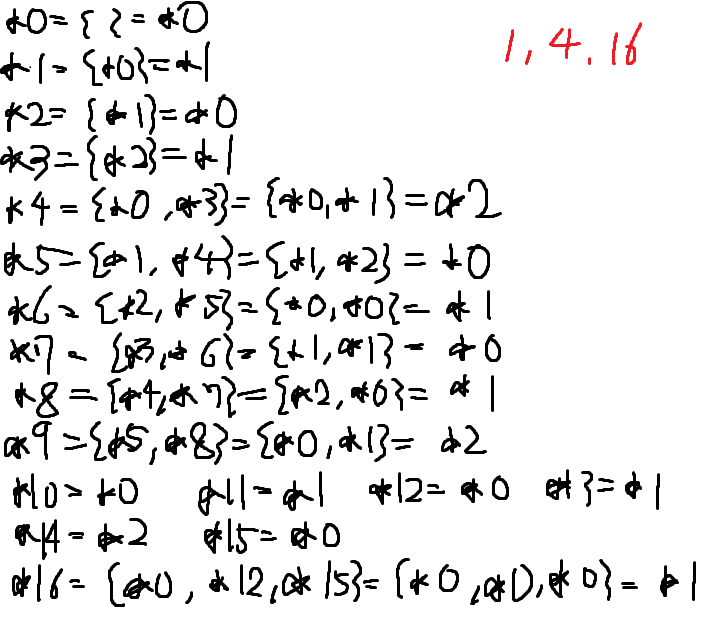 *0={ }=*0
1,4.16
*1={*0}=*1
*2={*1}=*0
*3={*2}=*1
*4={*0,*3}={*0,*1}=*2
*5={*1,*4}={*1,*2}=*0
*6={*2,*5}={*0,*0}=*1
*7={*3,*6}={*1,*1}=*0
*8={*4,*7}={*2,*0}=*1
*9={*5,*8}={*0,*1}=*2
*10=*0 *11=*1 *12=*0 *13=*1
*14=*2 *15=*0
*16={*0,*12,*15}={*0,*0,*0}=*1